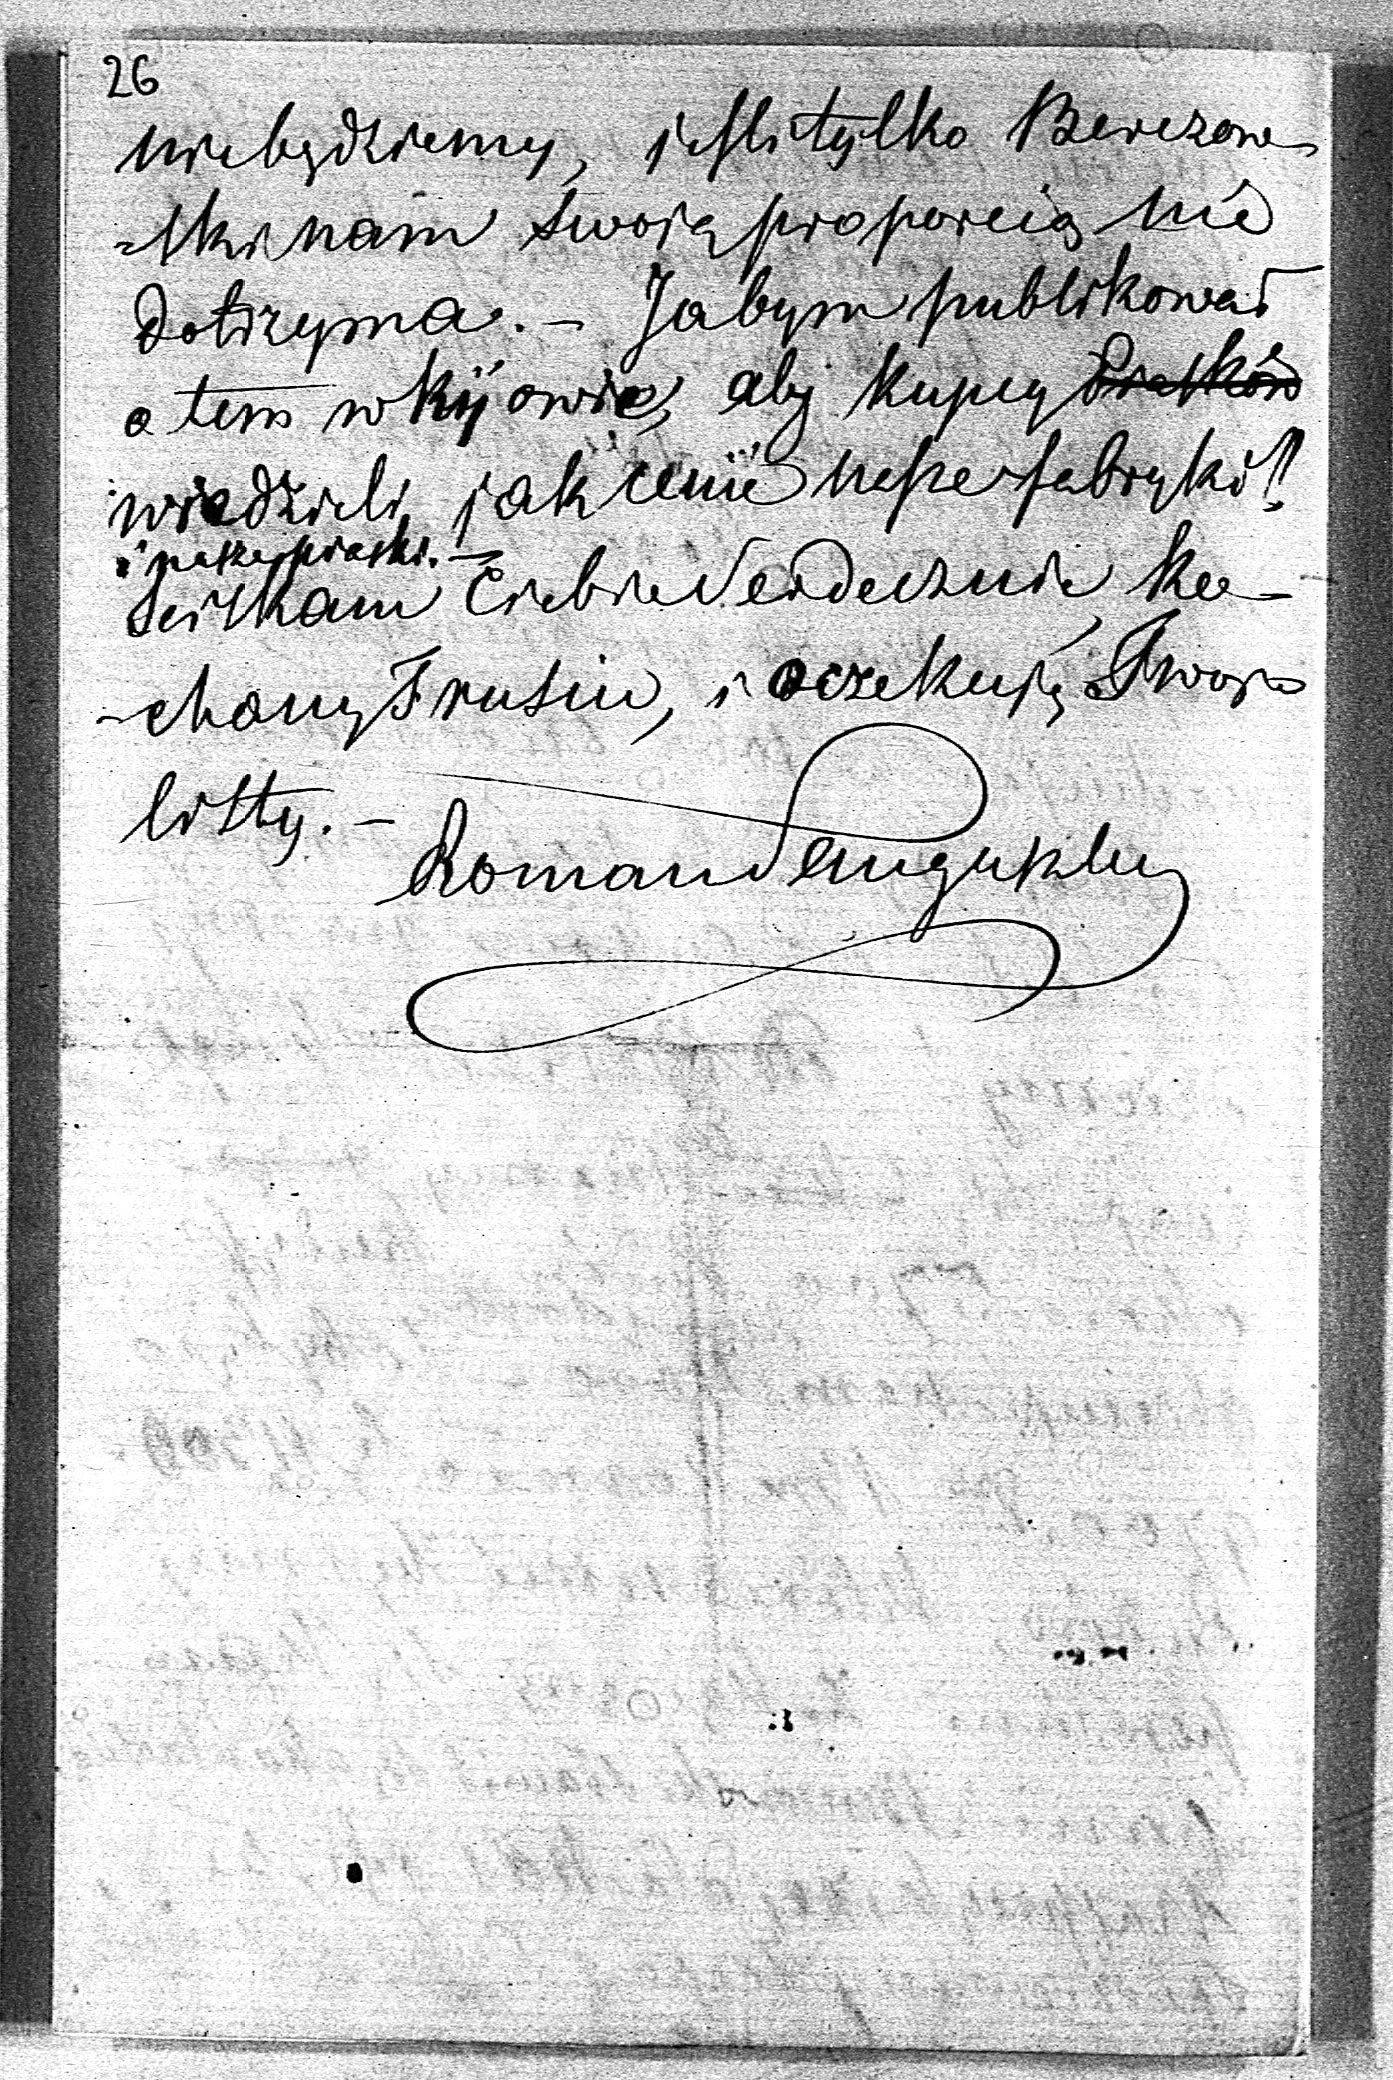 26
niebędziemy, jeśli tylko Berezow
-ski nam swoią proporcią nie
dotrzyma. – Ja bym publikował
o tem w Kijowie, aby kupcy piasków
wiedzieli, jak cenić nasze fabryki!
i nasze piaski. –
Sciskam Ciebie Serdecznie, ko-
-chany Frusiu, i oczekuję Twoje
listy. –
Roman Sanguszko